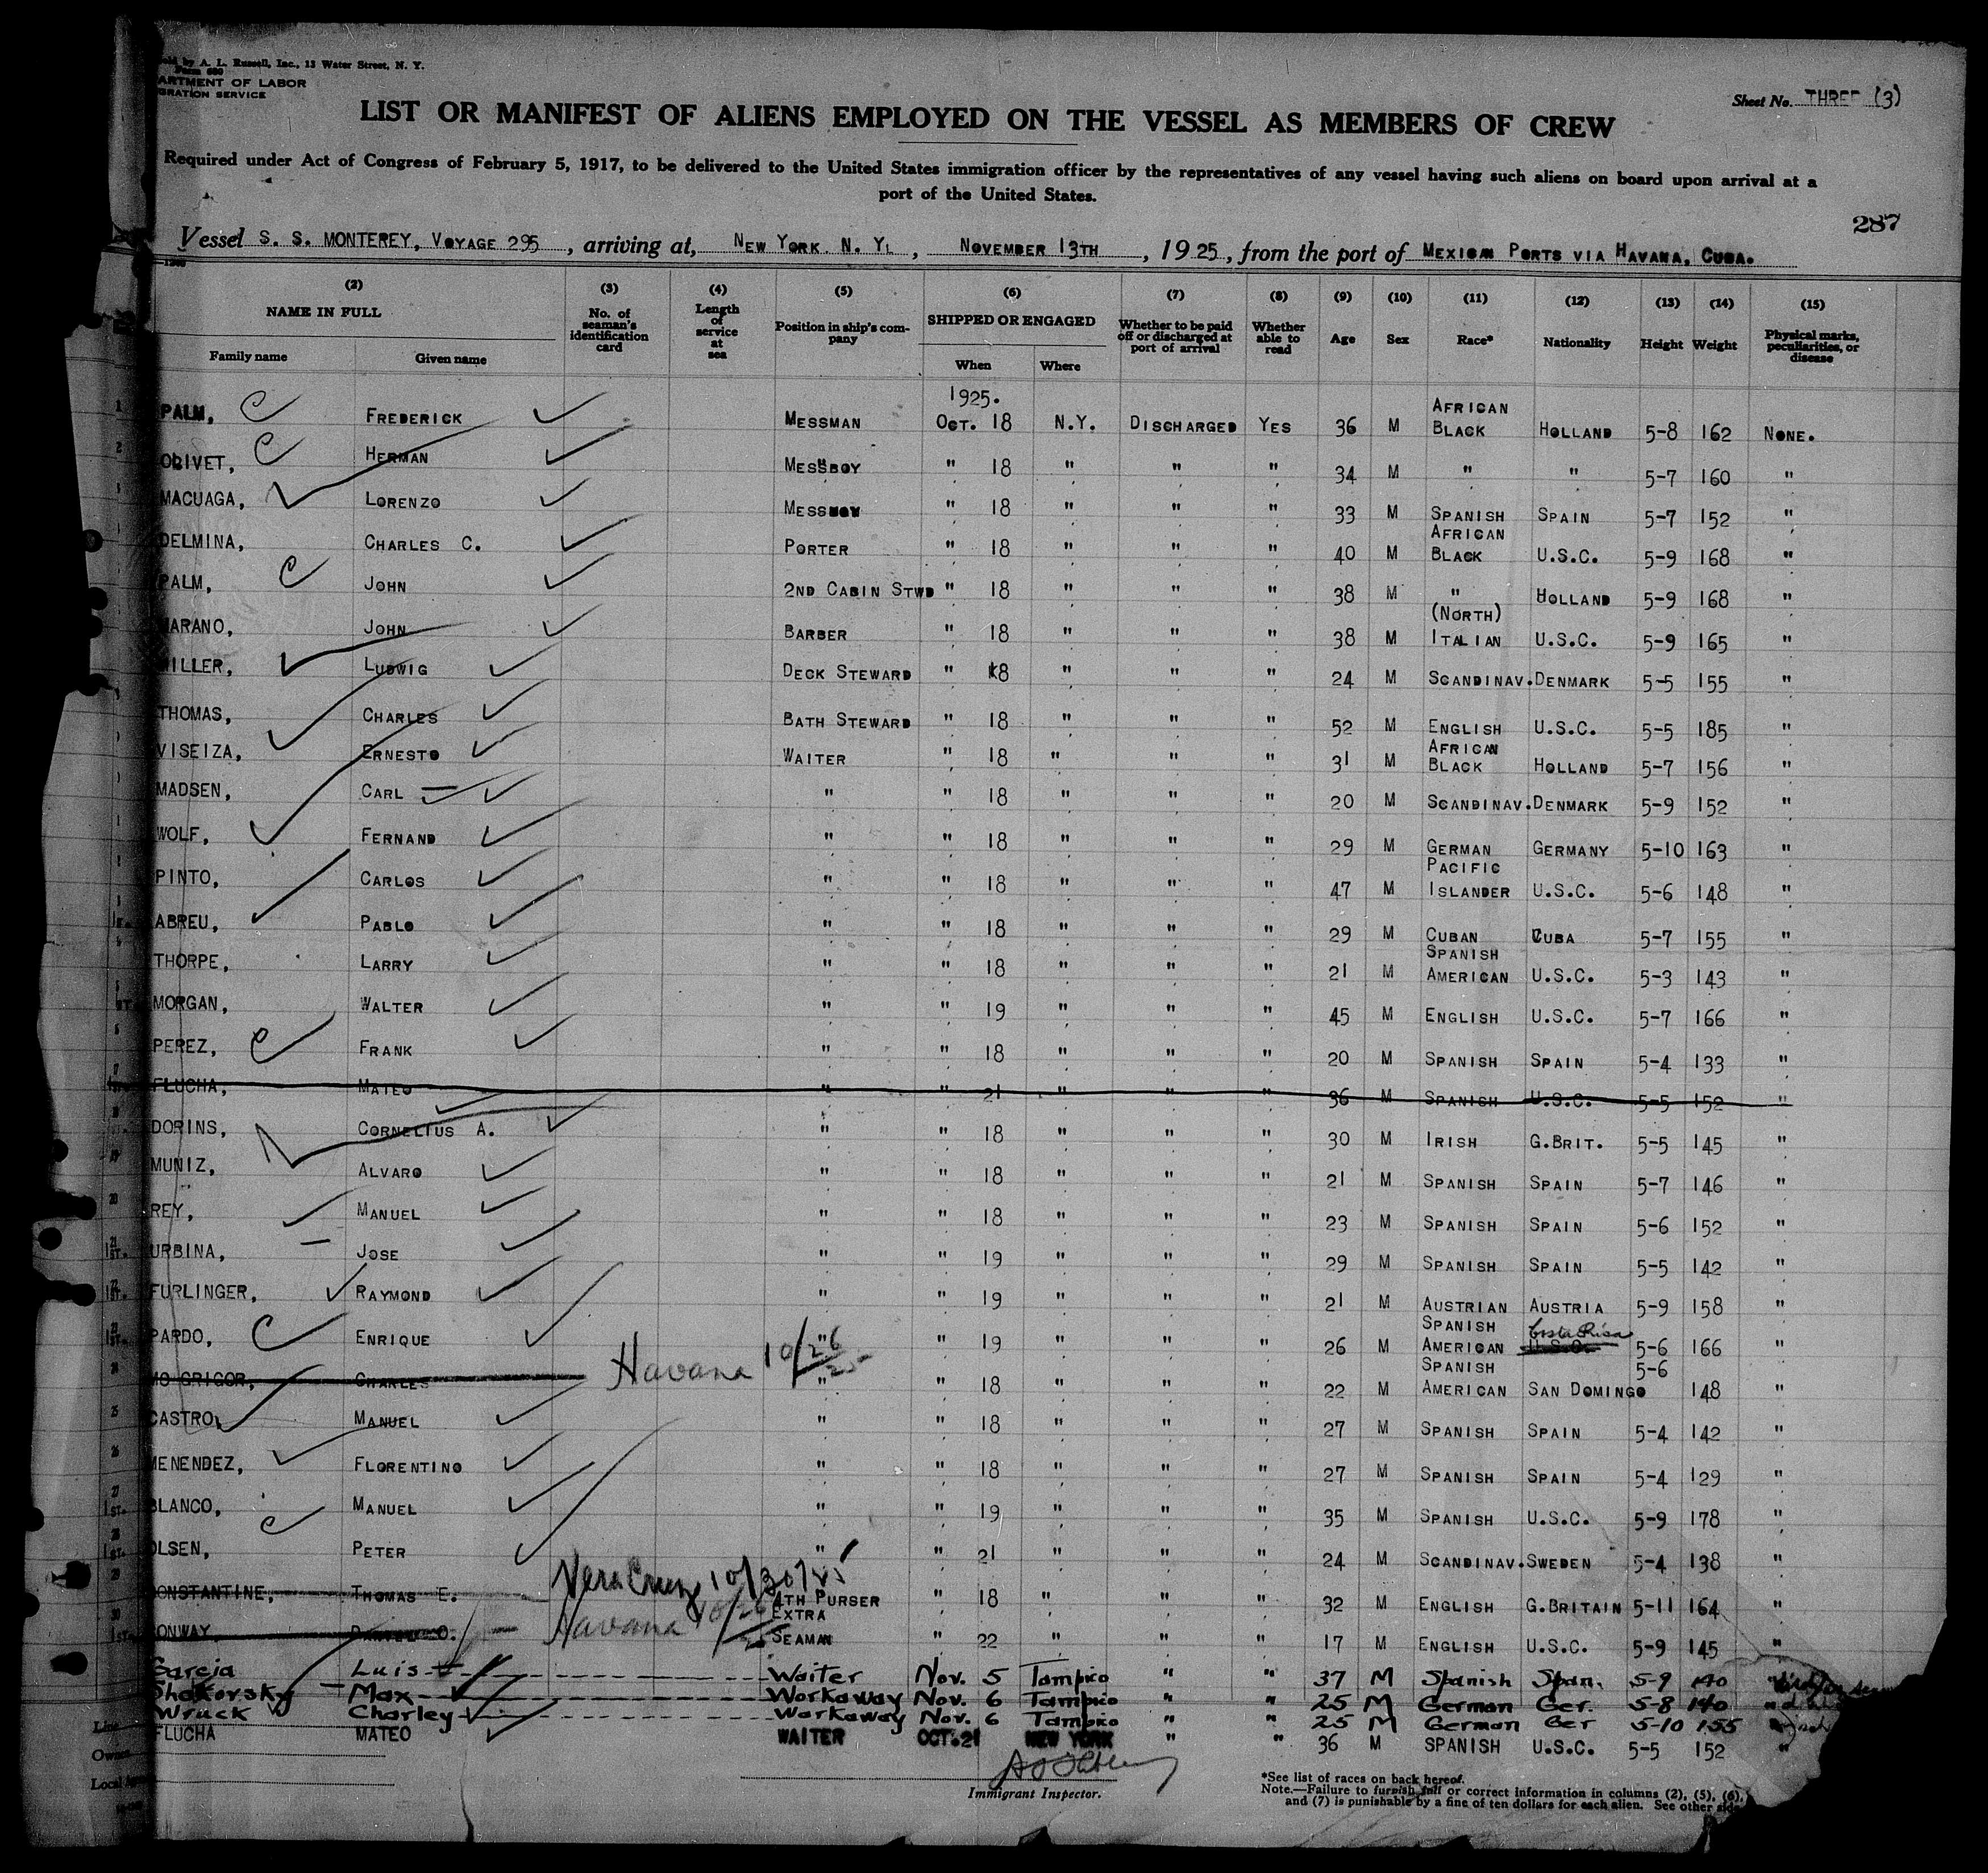 old by A. L. Russell, Inc., 13 Water Street, N. Y.
Form 680
ARTMENT OF LABOR
GRATION SERVICE
Sheet No. THREE (3)
LIST OR MANIFEST OF ALIENS EMPLOYED ON THE VESSEL AS MEMBERS OF CREW
Required under Act of Congress of February 5, 1917, to be delivered to the United States immigration officer by the representatives of any vessel having such aliens on board upon arrival at a
port of the United States.
287
Vessel S. S. MONTEREY, VOYAGE 295, arriving at, NEW YORK. N. Y., NOVEMBER 13TH, 1925, from the port of MEXICAN PORTS VIA HAVANA, CUBA.
(2) (3) (4) (5) (6) (7) (8) (9) (10) (11) (12) (13) (14) (15)
NAME IN FULL No. of seaman's identification card Length of service at sea Position in ship's company SHIPPED OR ENGAGED Whether to be paid off or discharged at port of arrival Whether able to read Age Sex Race* Nationality Height Weight Physical marks, peculiarities, or disease
Family name Given name When Where
1925.
1 PALM, FREDERICK MESSMAN OCT. 18 N.Y. DISCHARGED YES 36 M AFRICAN BLACK HOLLAND 5-8 162 NONE.
2 OLIVET, HERMAN MESSBOY " 18 " " " 34 M " " 5-7 160 "
MACUAGA, LORENZO MESSBOY " 18 " " " 33 M SPANISH SPAIN 5-7 152 "
DELMINA, CHARLES C. PORTER " 18 " " " 40 M AFRICAN BLACK U.S.C. 5-9 168 "
PALM, JOHN 2ND CABIN STWD " 18 " " " 38 M " HOLLAND 5-9 168 "
MARANO, JOHN BARBER " 18 " " " 38 M (NORTH) ITALIAN U.S.C. 5-9 165 "
MILLER, LUDWIG DECK STEWARD " 18 " " " 24 M SCANDINAV. DENMARK 5-5 155 "
THOMAS, CHARLES BATH STEWARD " 18 " " " 52 M ENGLISH U.S.C. 5-5 185 "
VISEIZA, ERNESTO WAITER " 18 " " " 31 M AFRICAN BLACK HOLLAND 5-7 156 "
MADSEN, CARL " " 18 " " " 20 M SCANDINAV. DENMARK 5-9 152 "
WOLF, FERNAND " " 18 " " " 29 M GERMAN GERMANY 5-10 163 "
PINTO, CARLOS " " 18 " " " 47 M PACIFIC ISLANDER U.S.C. 5-6 148 "
ABREU, PABLO " " 18 " " " 29 M CUBAN CUBA 5-7 155 "
THORPE, LARRY " " 18 " " " 21 M SPANISH AMERICAN U.S.C. 5-3 143 "
MORGAN, WALTER " " 19 " " " 45 M ENGLISH U.S.C. 5-7 166 "
PEREZ, FRANK " " 18 " " " 20 M SPANISH SPAIN 5-4 133 "
FLUCHA, MATEO " " 21 " " " 36 M SPANISH U.S.C. 5-5 152 "
DORINS, CORNELIUS A. " " 18 " " " 30 M IRISH G.BRIT. 5-5 145 "
19 MUNIZ, ALVARO " " 18 " " " 21 M SPANISH SPAIN 5-7 146 "
20 REY, MANUEL " " 18 " " " 23 M SPANISH SPAIN 5-6 152 "
21 1ST. URBINA, JOSE " " 19 " " " 29 M SPANISH SPAIN 5-5 142 "
22 1ST. FURLINGER, RAYMOND " " 19 " " " 21 M AUSTRIAN AUSTRIA 5-9 158 "
23 1ST. PARDO, ENRIQUE " " 19 " " " 26 M SPANISH AMERICAN U.S.C. Costa Rica 5-6 166 "
24 MC GRIGOR, CHARLES Havana 10/26/25 " " 18 " " " 22 M SPANISH AMERICAN SAN DOMINGO 5-6 148 "
25 CASTRO, MANUEL " " 18 " " " 27 M SPANISH SPAIN 5-4 142 "
26 MENENDEZ, FLORENTINO " " 18 " " " 27 M SPANISH SPAIN 5-4 129 "
27 1ST. BLANCO, MANUEL " " 19 " " " 35 M SPANISH U.S.C. 5-9 178 "
28 1ST. OLSEN, PETER " " 21 " " " 24 M SCANDINAV. SWEDEN 5-4 138 "
29 CONSTANTINE, THOMAS E. Vera Cruz 10/30/25 4TH PURSER " 18 " " " 32 M ENGLISH G.BRITAIN 5-11 164 "
30 1ST. CONWAY, O. Havana EXTRA SEAMAN " 22 " " " 17 M ENGLISH U.S.C. 5-9 145 "
Garcia Luis Waiter Nov. 5 Tampico " " 37 M Spanish Span. 5-9 140 "
Shakorsky Max Workaway Nov. 6 Tampico " " 25 M German Ger. 5-8 140 "
Wruck Charley Workaway Nov. 6 Tampico " " 25 M German Ger 5-10 155 "
FLUCHA MATEO WAITER OCT. 21 NEW YORK " " 36 M SPANISH U.S.C. 5-5 152 "
Line
Owner
Local Agent
Immigrant Inspector.
*See list of races on back hereof.
Note.—Failure to furnish full or correct information in columns (2), (5), (6),
and (7) is punishable by a fine of ten dollars for each alien. See other side